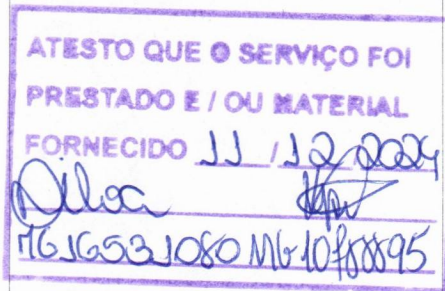 ATESTO QUE O SERVIÇO FOI
PRESTADO E / OU MATERIAL
FORNECIDO 11 / 12 / 2024
Dilva
MG16531080 MG